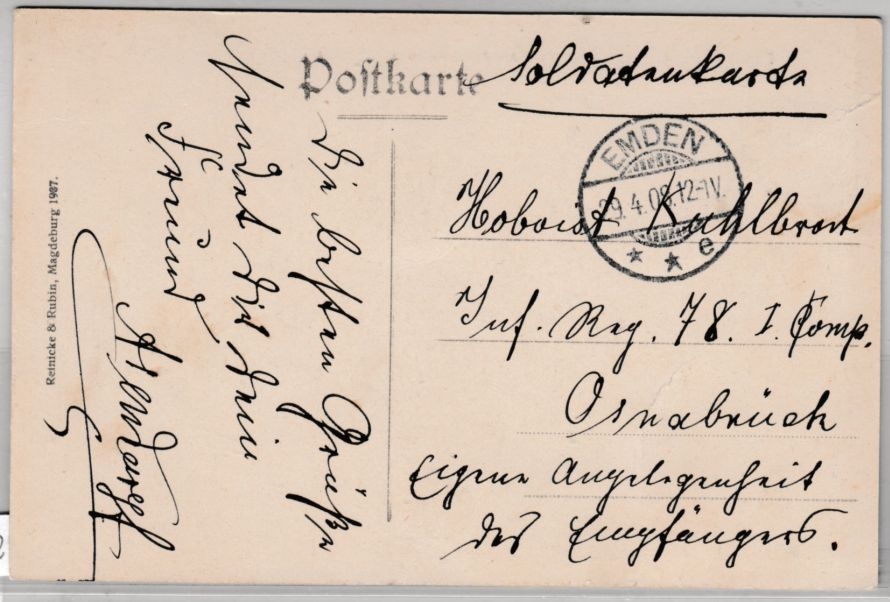 Postkarte
Soldatenkarte
EMDEN
29.4.08.12-1V.
* * e
Hoboist Kuhlbrort
Inf. Reg. 78. I. Comp.
Osnabrück
Eigene Angelegenheit
des Empfängers.
die besten Grüße
sendet dir dein
Freund
Reinicke & Rubin, Magdeburg 1907.